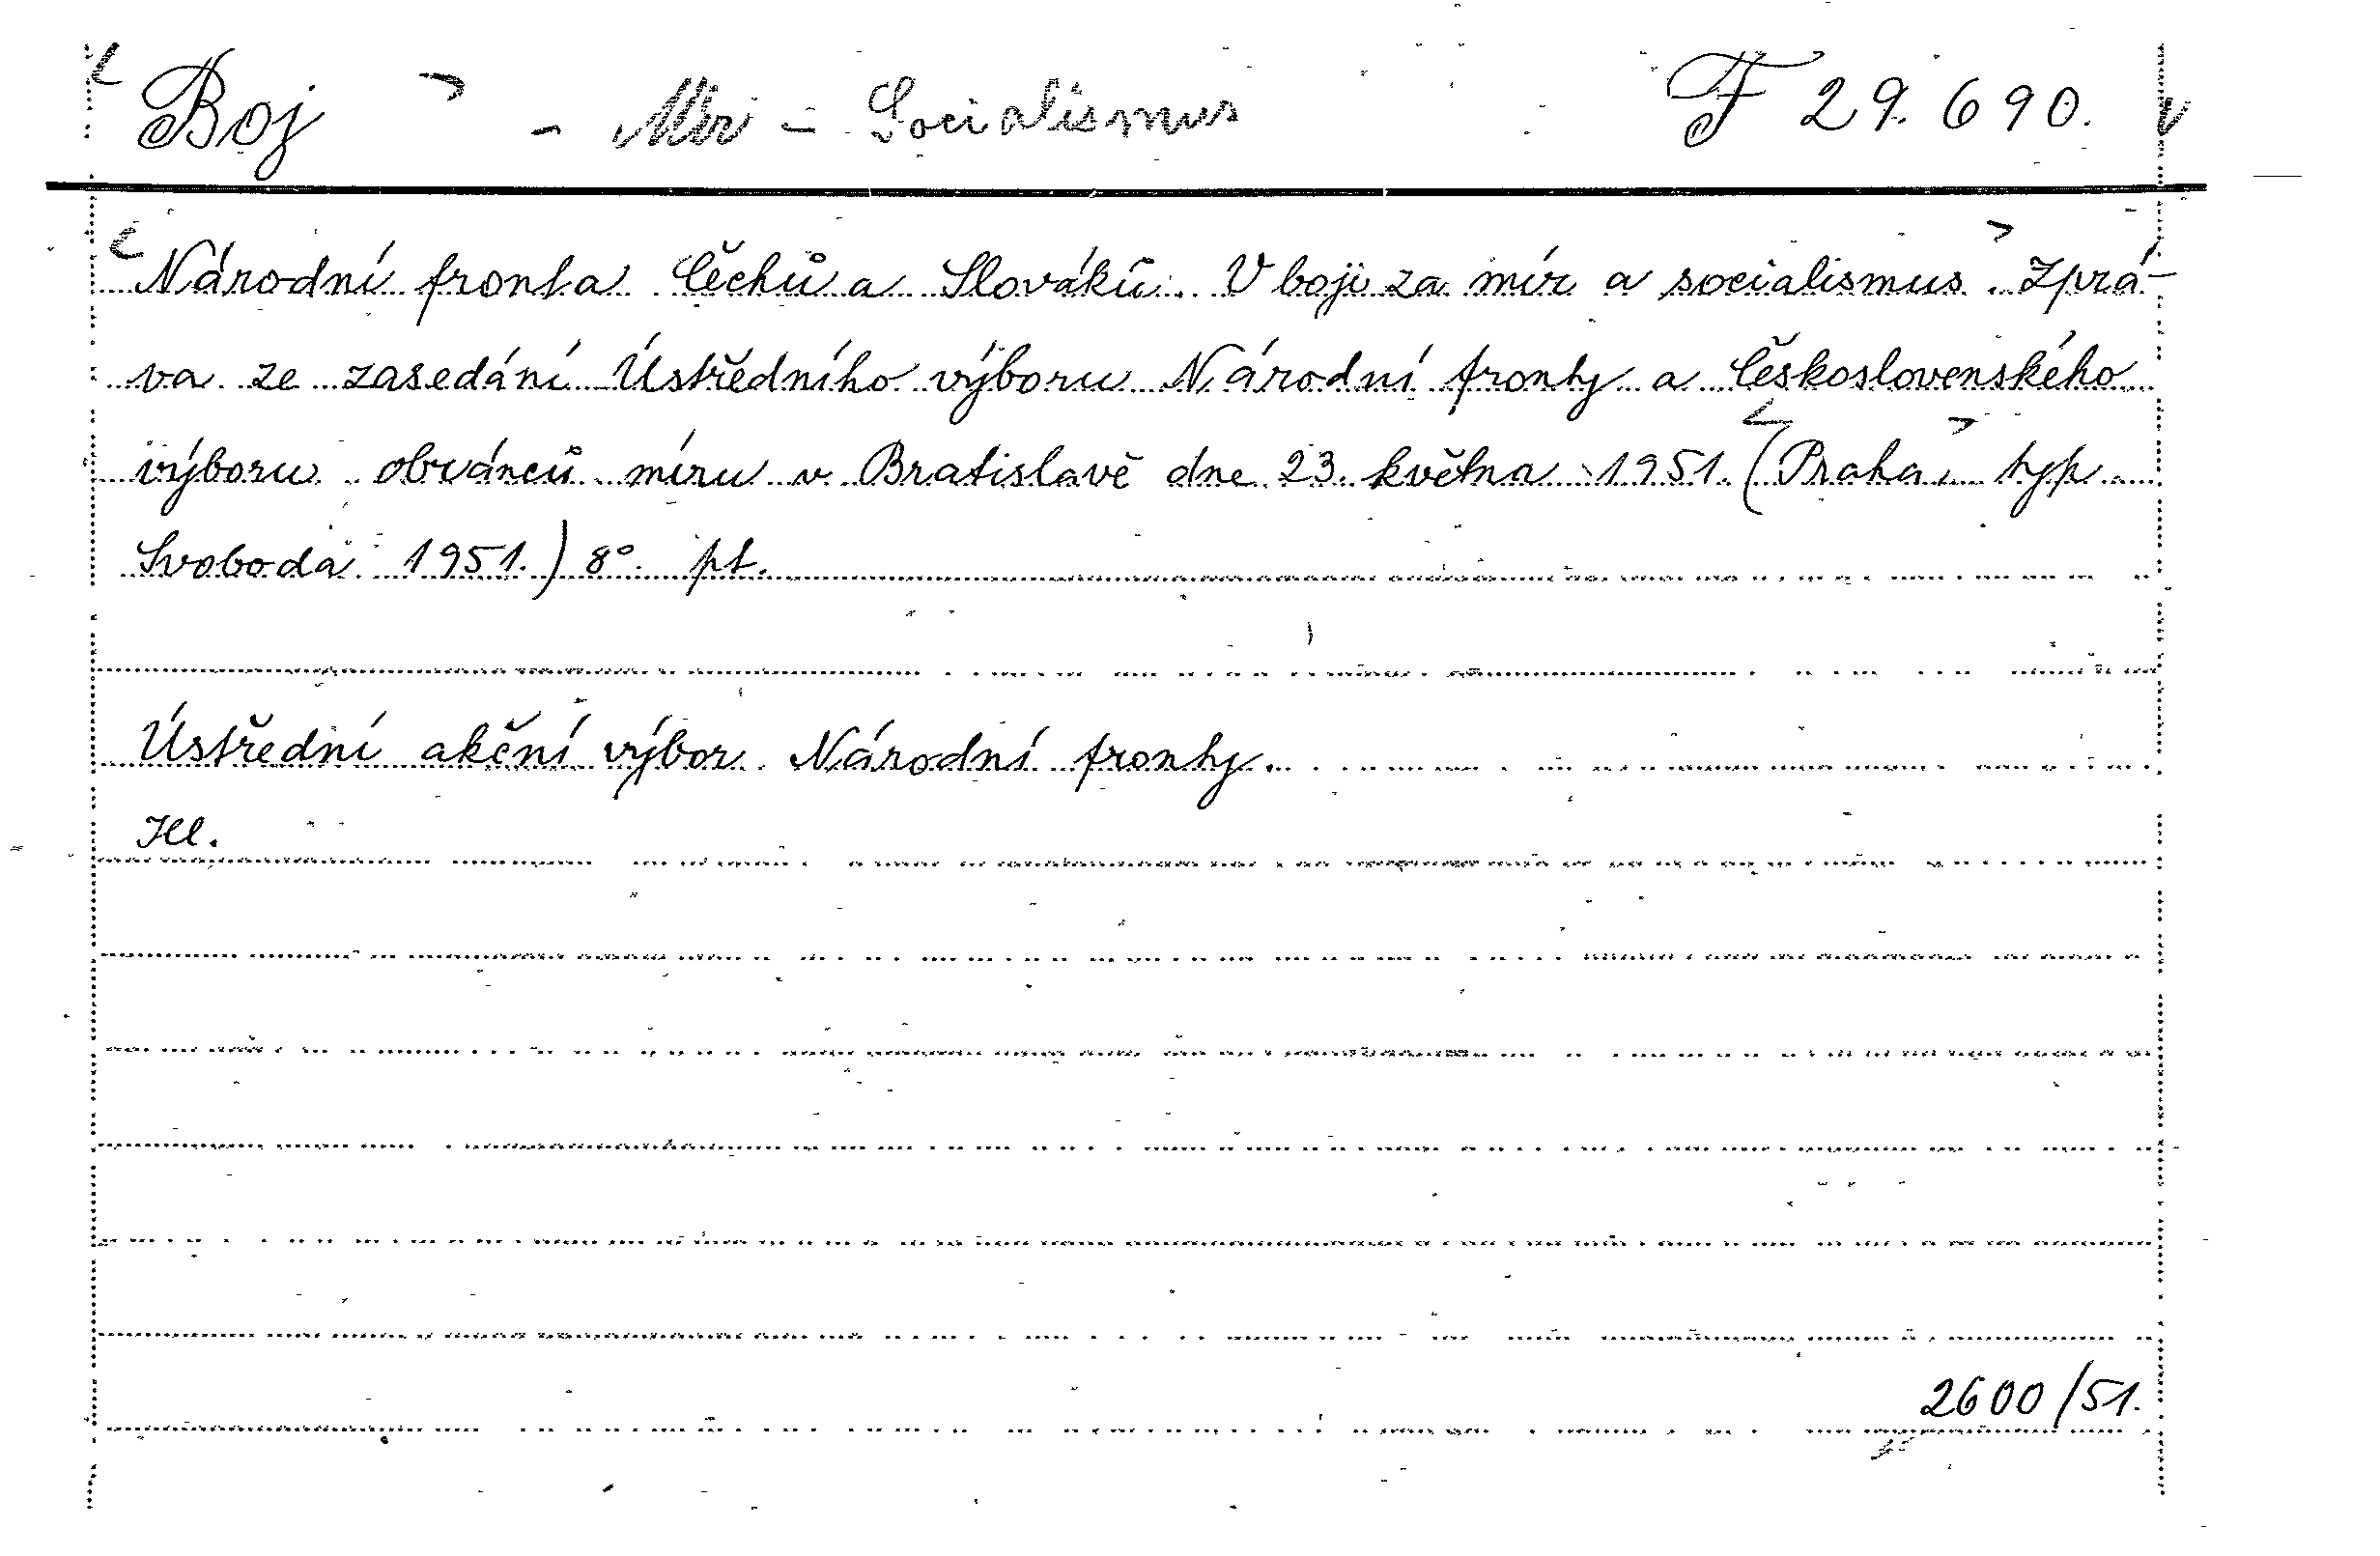 Boj - Mír - Socialismus F 29.690.
Národní fronta Čechů a Slováků. V boji za mír a socialismus. Zprá-
va ze zasedání Ústředního výboru Národní fronty a Československého
výboru obránců míru v Bratislavě dne 23. května 1951. (Praha, typ
Svoboda 1951.) 8°. pt.
Ústřední akční výbor Národní fronty.
Ill.
2600/51.